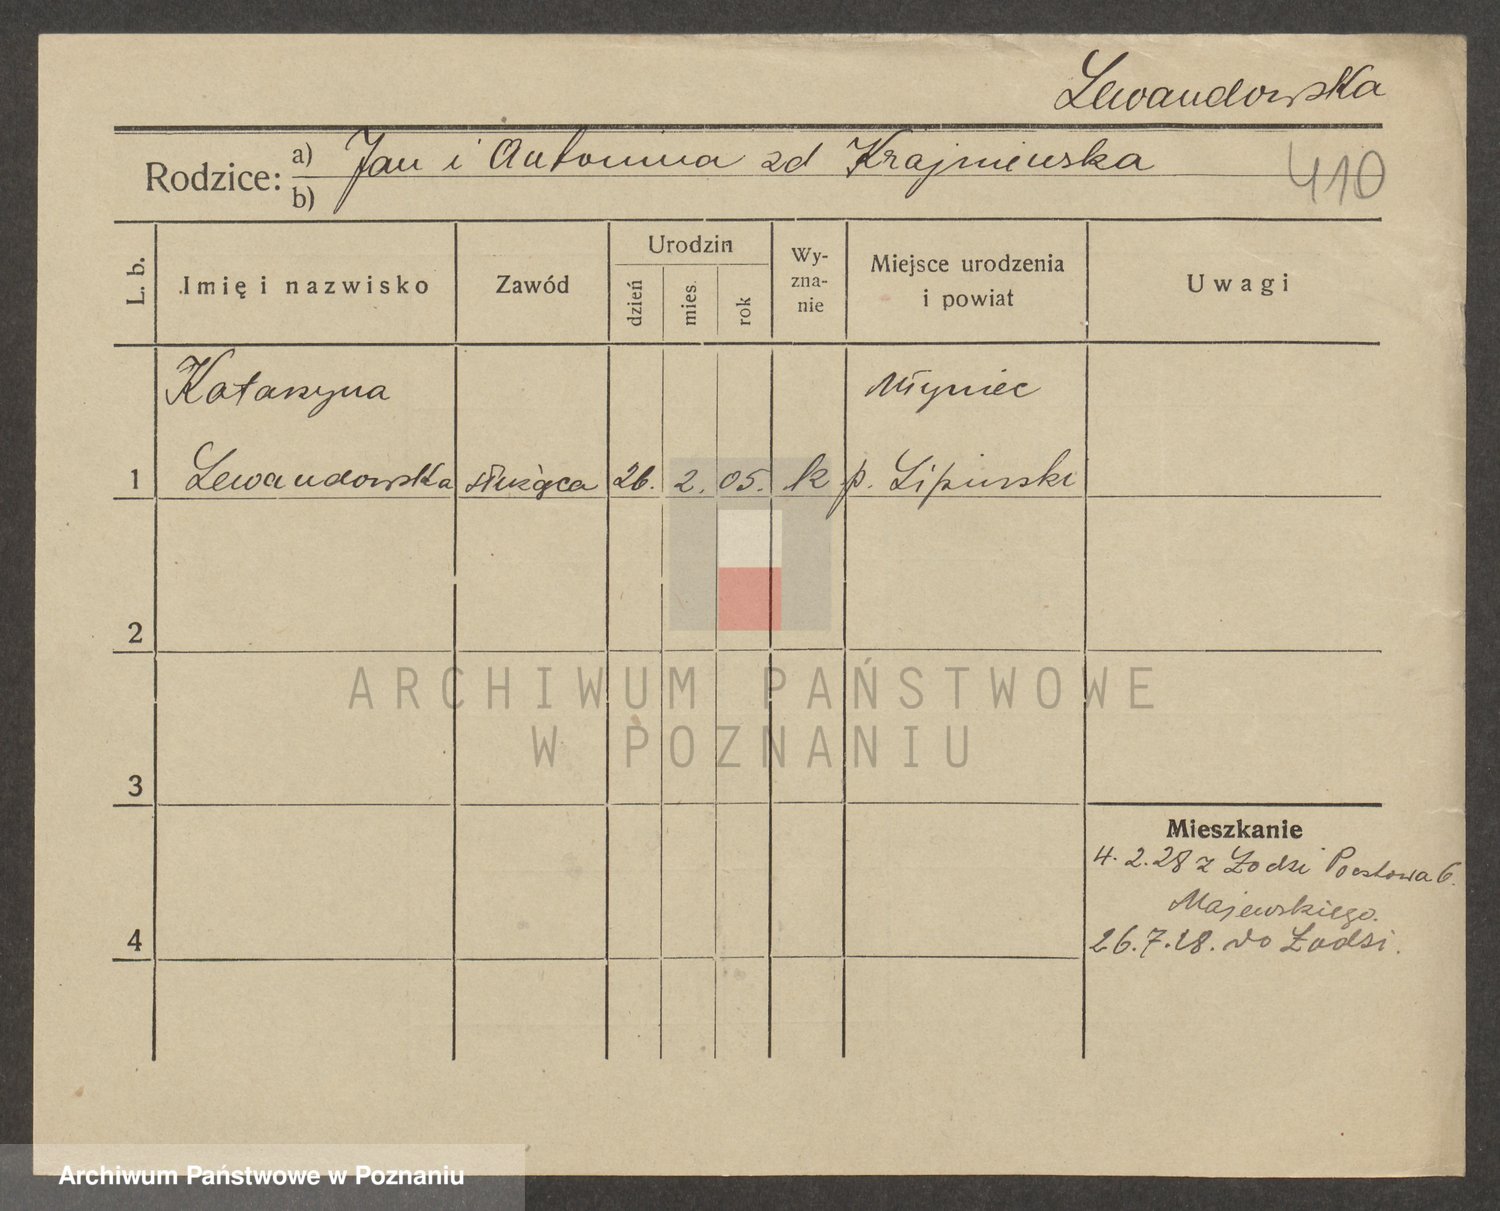 Lewandowska
Rodzice: a) Jan i Antonina zd Krajniewska
b)
410
L. b.
Imię i nazwisko
Zawód
Urodzin
dzień
mies.
rok
Wy-
zna-
nie
Miejsce urodzenia
i powiat
Uwagi
Katarzyna
Młyniec
1 Lewandowska służąca 26. 2. 05. k p. Lipnoski
2
3
4
Mieszkanie
4.2.28 z Łodzi Pocztowa 6.
Majewskiego.
26.7.28. do Łodzi.
ARCHIWUM PAŃSTWOWE
W POZNANIU
Archiwum Państwowe w Poznaniu